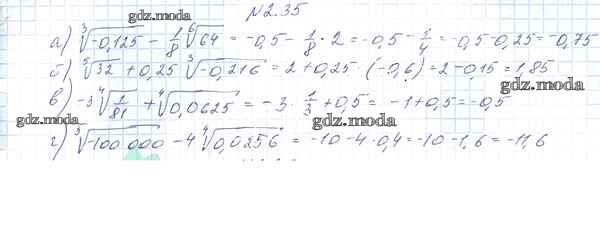 gdz.moda
№2.35
а) ∛-0,125 - 1/8 ⁶√64 = -0,5 - 1/8 · 2 = -0,5 - 1/4 = -0,5 - 0,25 = -0,75
б) ⁵√32 + 0,25 ∛-0,216 = 2 + 0,25 · (-0,6) = 2 - 0,15 = 1,85
gdz.moda
gdz.moda
в) -3 ⁴√1/81 + ⁴√0,0625 = -3 · 1/3 + 0,5 = -1 + 0,5 = -0,5
gdz.moda
gdz.moda
г) ⁵√-100 000 - 4 ⁴√0,0256 = -10 - 4 · 0,4 = -10 - 1,6 = -11,6